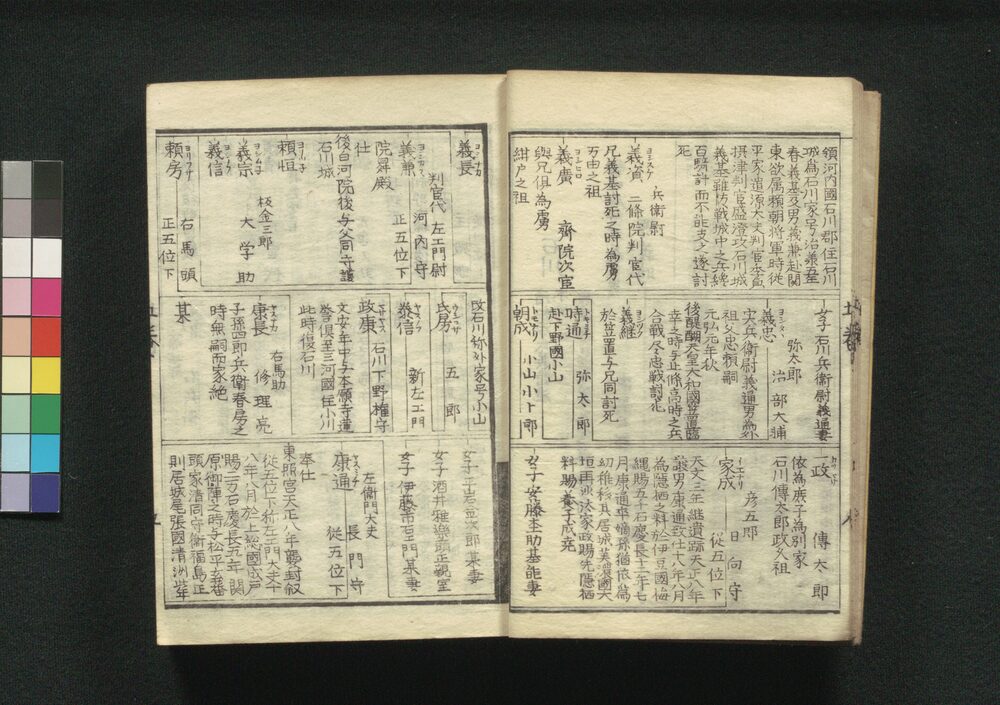 領河内國石川郡住石川
城為石川家号治義至
春義基及男義兼赴関
東欲属頼朝将軍時從
平家遣源大夫判官季貞
摂津判官盛澄攻石川城
義基雖防戦城中之兵纔
百騎許而不能支之遂討
死
ヨシスケ
義資
兵衛尉
二條院判官代
兄義基討死之時為虜
万田之祖
ヨシヒロ
義廣
齋院次官
與兄倶為虜
紺戸之祖
女子石川兵衛尉義通妻
ヨシタヽ
義忠
弥太郎
治部大輔
実兵衛尉義通男為外
祖父忠頼嗣
元弘元年秋
後醍醐天皇大和國笠置臨
幸之時与北條高時之兵
合戦尽忠戦討死
ヨシツグ
義継
於笠置与兄同討死
トキミチ
時通
弥太郎
赴下野國小山
トモナリ
朝成
小山小下郎
カツマサ
一政
傳太郎
依為庶子為別家
石川傳太郎政次祖
イエナリ
家成
彦五郎
日向守
従五位下
天文三年継遺跡天正八年
譲男康通致仕十八年八月
為隠栖之料於伊豆國梅
縄賜五千石慶長十二年七
月康通卒嫡孫猶依為
幼稚移其居城美濃國大
垣再沙汰家政賜先隠栖
料賜養子成尭
女子安藤杢助基能妻
ヨシナガ
義長
判官代
左エ門尉
ヨシカネ
義兼
河内守
正五位下
院昇殿
仕
後白河院後与父同守護
石川城
ヨリツネ
頼恒
ヨシムネ
義宗
板金三郎
大学助
ヨシノフ
義信
ヨリフサ
頼房
右馬頭
正五位下
改石川称外家号小山
ウヂフサ
氏房
五郎
ヤスノブ
泰信
新左エ門
マサヤス
政康
石川下野権守
文安年中与本願寺蓮
誉倶至三河國住小川
此時復石川
ヤスナガ
康長
右馬助
修理亮
子孫四郎兵衛春房之
時無嗣而家絶
某
女子平岩豆次郎某妻
女子酒井雅楽頭正親室
女子伊藤市右エ門某妻
ヤスミチ
康通
左衛門大夫
長門守
従五位下
奉仕
東照宮天正八年襲封叙
従五位下斬左エ門大夫十
八年八月於上総國鳴戸
賜二万石慶長五年関
原御陣之時与松平玄番
頭家清同守衛福島正
則居城尾張國清洲翠